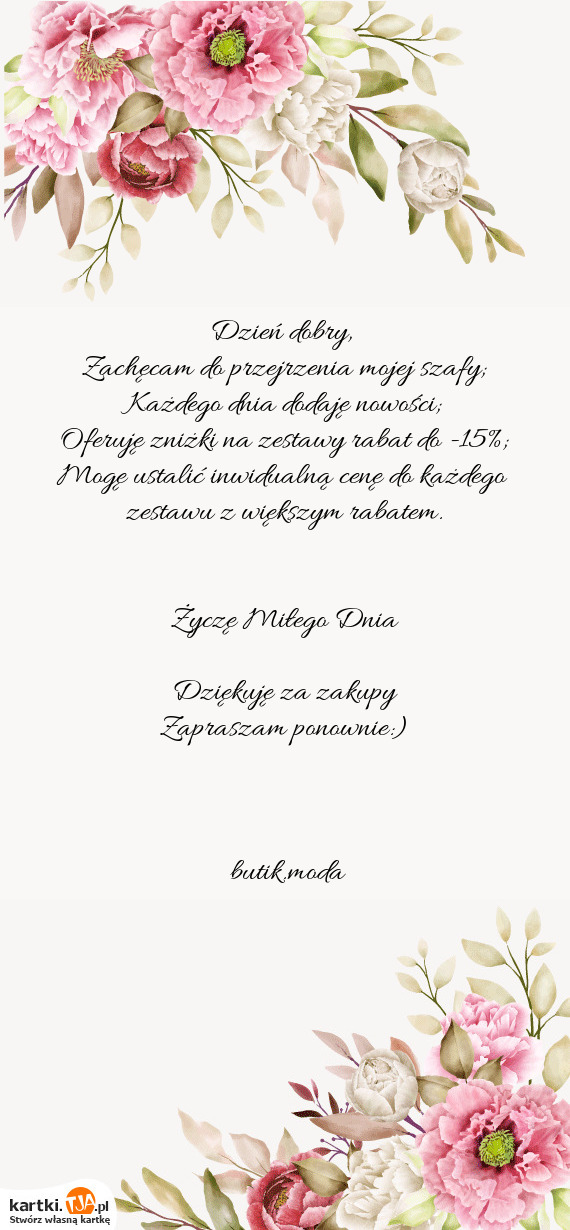 Dzień dobry,
Zachęcam do przejrzenia mojej szafy;
Każdego dnia dodaję nowości;
Oferuję zniżki na zestawy rabat do -15%;
Mogę ustalić inwidualną cenę do każdego
zestawu z większym rabatem.
Życzę Miłego Dnia
Dziękuję za zakupy
Zapraszam ponownie:)
butik.moda
kartki.TJA.pl
Stwórz własną kartkę